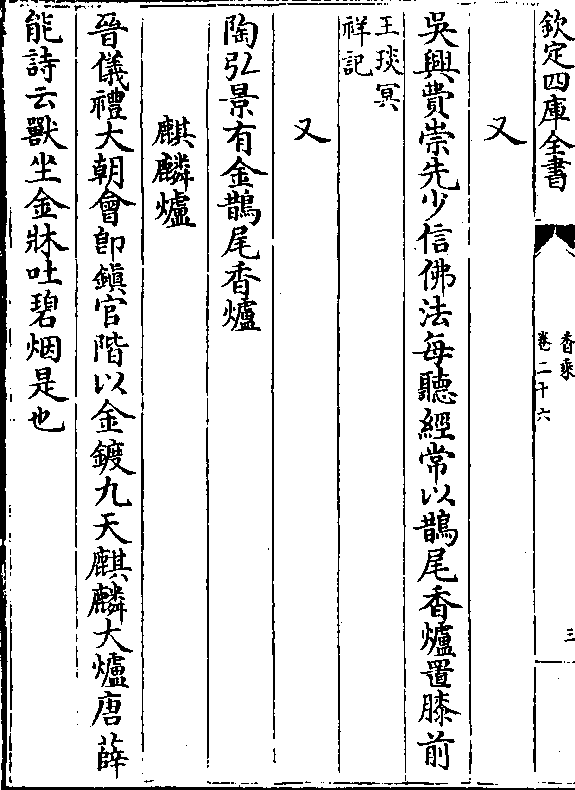 欽定四庫全書
香乘
卷二十六
三
又
吳興費崇先少信佛法每聽經常以鵲尾香爐置膝前
王琰冥
祥記
又
陶弘景有金鵲尾香爐
麒麟爐
晉儀禮大朝會卽鎮官階以金鍍九天麒麟大爐唐薛
能詩云獸坐金牀吐碧烟是也